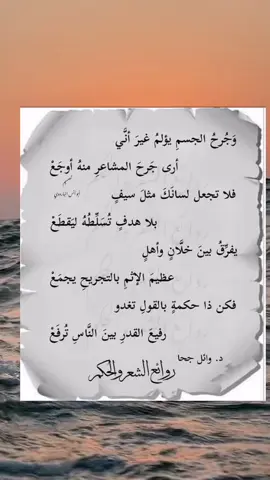 وَجُرحُ الجسمِ يؤلمُ غيرَ أنَّني
أرى جَرحَ المشاعرِ منهُ أوجَعْ
فلا تجعل لسانَكَ مثلَ سيفٍ
بلا هدفٍ تُسَلِّطُهُ ليَقطَعْ
يفرِّقُ بينَ خلَّانٍ وأهلٍ
عظيمَ الإثمِ بالتجريحِ يجمَعْ
فكن ذا حكمةٍ بالقولِ تغدو
رفيعَ القدرِ بينَ النَّاسِ تُرفَعْ
د. وائل جحا
روائع الشعر والحكم